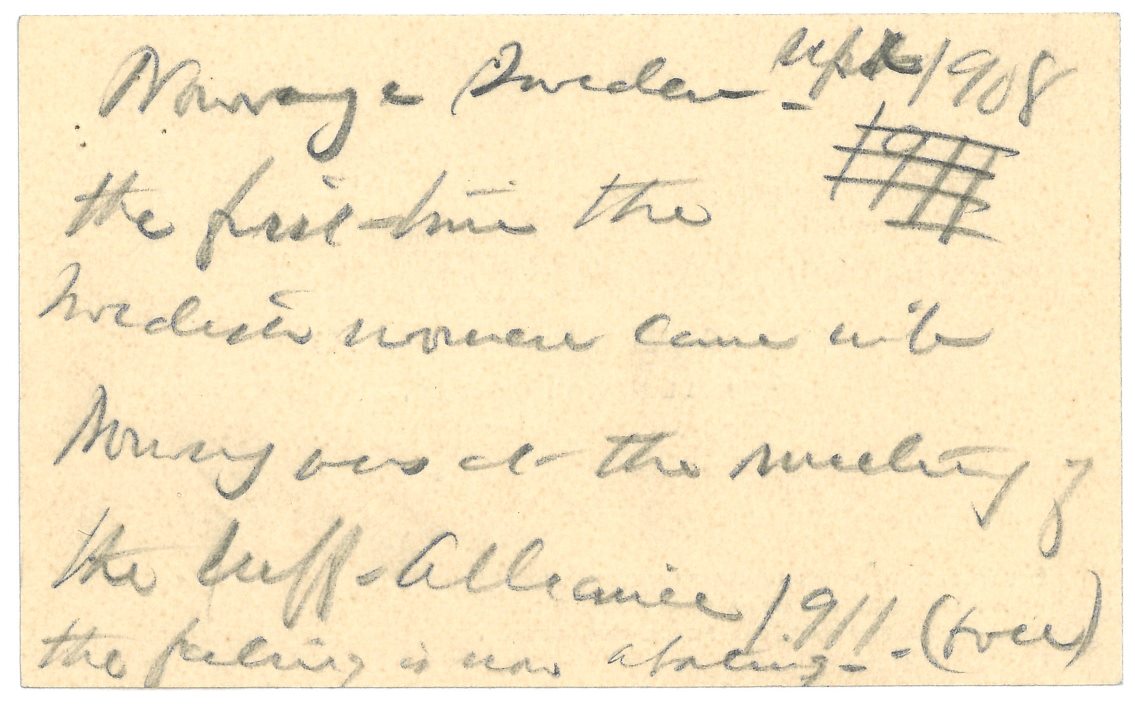 Norway & Sweden - sept 1908
1911
the first time the
Swedish women came into
Norway was at the meeting of
the Suff. Alliance 1911 (over)
the feeling is now abating -